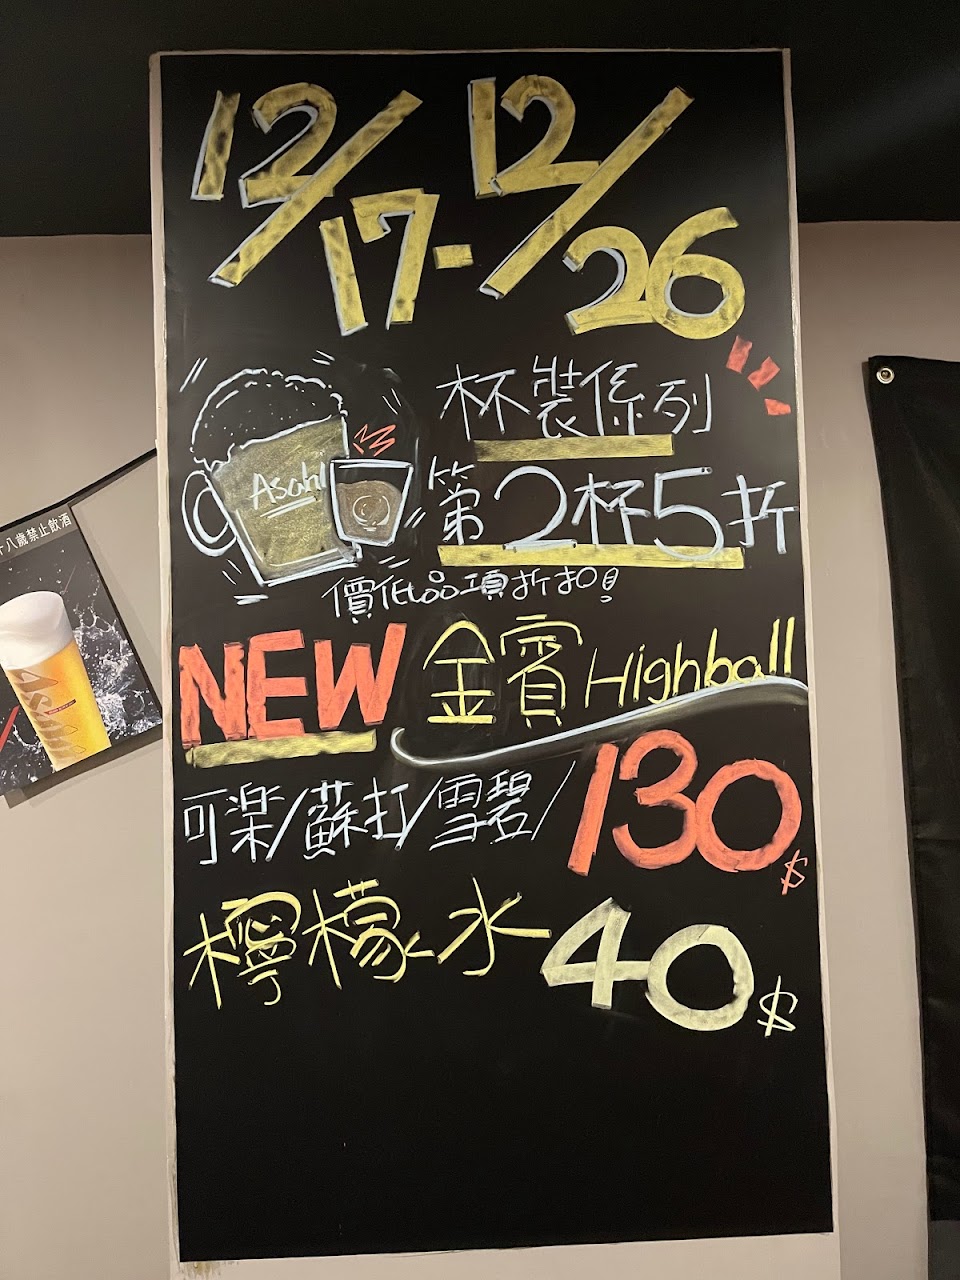 12/17-12/26
杯裝係列
第2杯5折
Asahi
價低品項折扣!
NEW 金賓 Highball
可楽/蘇打/雪碧/130$
檸檬水 40$
十八歲禁止飲酒
Asahi